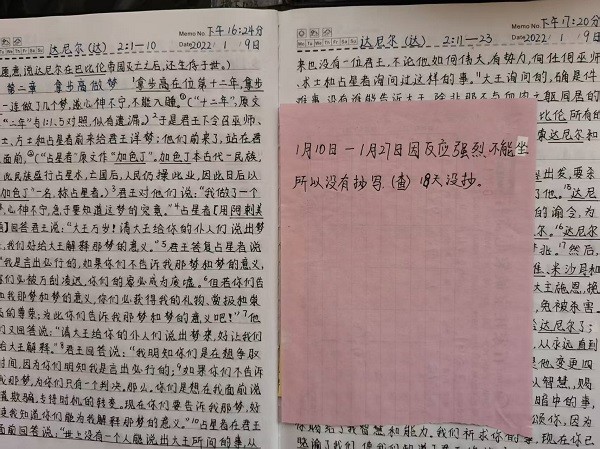 Memo No. 下午16:24分
达尼尔(达) 2:1—10
Mo Tu We Th Fr Sa Su
Date 2022 / 1 / 9日
愿意,说达尼尔在巴比伦帝国灭亡之后,还生存于世。
第二章 拿步高做梦 ¹拿步高在位第十二年,拿步
一连做了几个梦,遂心神不宁,不能入睡。
二年"与1:1,5对照,似有遗漏。)²于是君王下令召巫师、
士、方士和占星者前来给君王详梦;他们前来了,站在君
面前。("占星者"原文作"加色丁"。加色丁本古代一民族,
此民族盛行占星术,亡国后,人民仍操此业,因此日后以
加色丁"一名,称占星者。)³君王对他们说:"我做了一个
心神不宁,急于要知道这梦的究竟。"⁴占星者[用阿剌美
]回答君王说:"大王万岁!请大王给你的仆人们说出梦
,我们好给大王解释那梦的意义。"⁵君王答复占星者说
"我是言出必行的,如果你们不告诉我那梦和梦的意义,
们必被万剐凌迟,你们的房必成为废墟。⁶但若你们告
和我那梦和梦的意义,你们必获得我的礼物、赏报和荣
的尊荣;为此你们告诉我那梦和梦的意义吧!"⁷他
们又回答说:"请大王给你的仆人们说出梦来,好让我们
给大王解释。"⁸君王回答说:"我明知你们是在想争取
时间,因为你们明知我是言出必行的;⁹如果你们不告诉
我那梦,为你们只有一个判决。那么,你们是想在我面前说
谎欺骗,支持时机的转变。现在你们要告诉我那梦,好
使我知道你们能为我解释那梦的意义。"¹⁰占星者在君王
面前回答说:"世上没有一个人能说出大王所问的事,从
Memo No. 下午17:20分
达尼尔(达) 2:11—23
Mo Tu We Th Fr Sa Su
Date 2022 / 1 / 9日
来也没有一位君王,不论他如何伟大有势力,向任何巫师
术士和占星者询问过这样的事。¹¹大王询问的,确是件
1月10日—1月27日因反应强烈不能坐
所以没有抄写.(查)18天没抄。
比伦所有的
索达尼尔和
出发,要杀
达尼
的谕令,为
达尼尔
然后,
米沙耳和
大主施恩,挽
免被杀害
达尼尔了;
从永远直到
是他变更四
以智慧,赐
暗中的事,
颂你,因为
你赐给了我智慧和能力。我们祈求你的事,现在你已